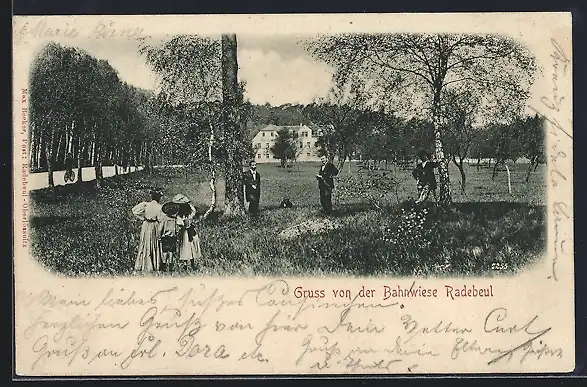 Marie Birn
Max Becker, Post: Radebeul-Oberlössnitz
5255
Gruss von der Bahnwiese Radebeul
Mein liebes, süsses Cousinchen.
Herzlichen Gruß von hier Dein Vetter Curt
Gruß an Frl. Dora etc. Gruß an Deine Eltern
u.